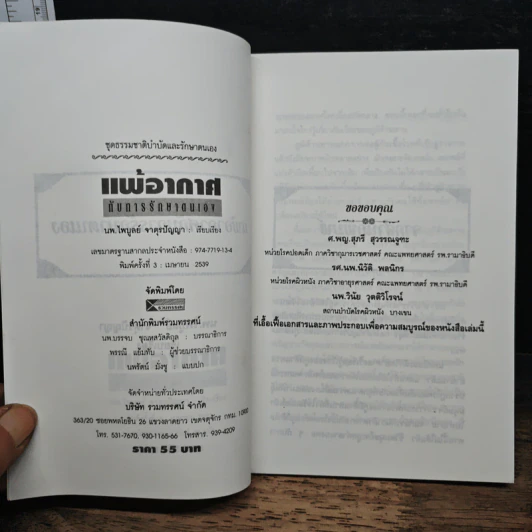 ชุดธรรมชาติบำบัดและรักษาตนเอง
แพ้อากาศ
กับการรักษาตนเอง
นพ.ไพบูลย์ จาตุรปัญญา : เรียบเรียง
เลขมาตรฐานสากลประจำหนังสือ : 974-7719-13-4
พิมพ์ครั้งที่ 3 : เมษายน 2539
จัดพิมพ์โดย
รวมทรรศน์
สำนักพิมพ์รวมทรรศน์
นพ.บรรจบ ชุณหสวัสดิกุล : บรรณาธิการ
พรรณี แย้มทับ : ผู้ช่วยบรรณาธิการ
นพรัตน์ มั่งชู : แบบปก
จัดจำหน่ายทั่วประเทศโดย
บริษัท รวมทรรศน์ จำกัด
363/20 ซอยพหลโยธิน 26 แขวงลาดยาว เขตจตุจักร กทม. 10900
โทร. 531-7670, 930-1165-66 โทรสาร. 939-4209
ราคา 55 บาท
ขอขอบคุณ
ศ.พญ.สุภรี สุวรรณจูฑะ
หน่วยโรคปอดเด็ก ภาควิชากุมารเวชศาสตร์ คณะแพทยศาสตร์ รพ.รามาธิบดี
รศ.นพ.นิวัติ พลนิกร
หน่วยโรคผิวหนัง ภาควิชาอายุรศาสตร์ คณะแพทยศาสตร์ รพ.รามาธิบดี
นพ.วินัย วุตติวิโรจน์
สถานบำบัดโรคผิวหนัง บางเขน
ที่เอื้อเฟื้อเอกสารและภาพประกอบเพื่อความสมบูรณ์ของหนังสือเล่มนี้